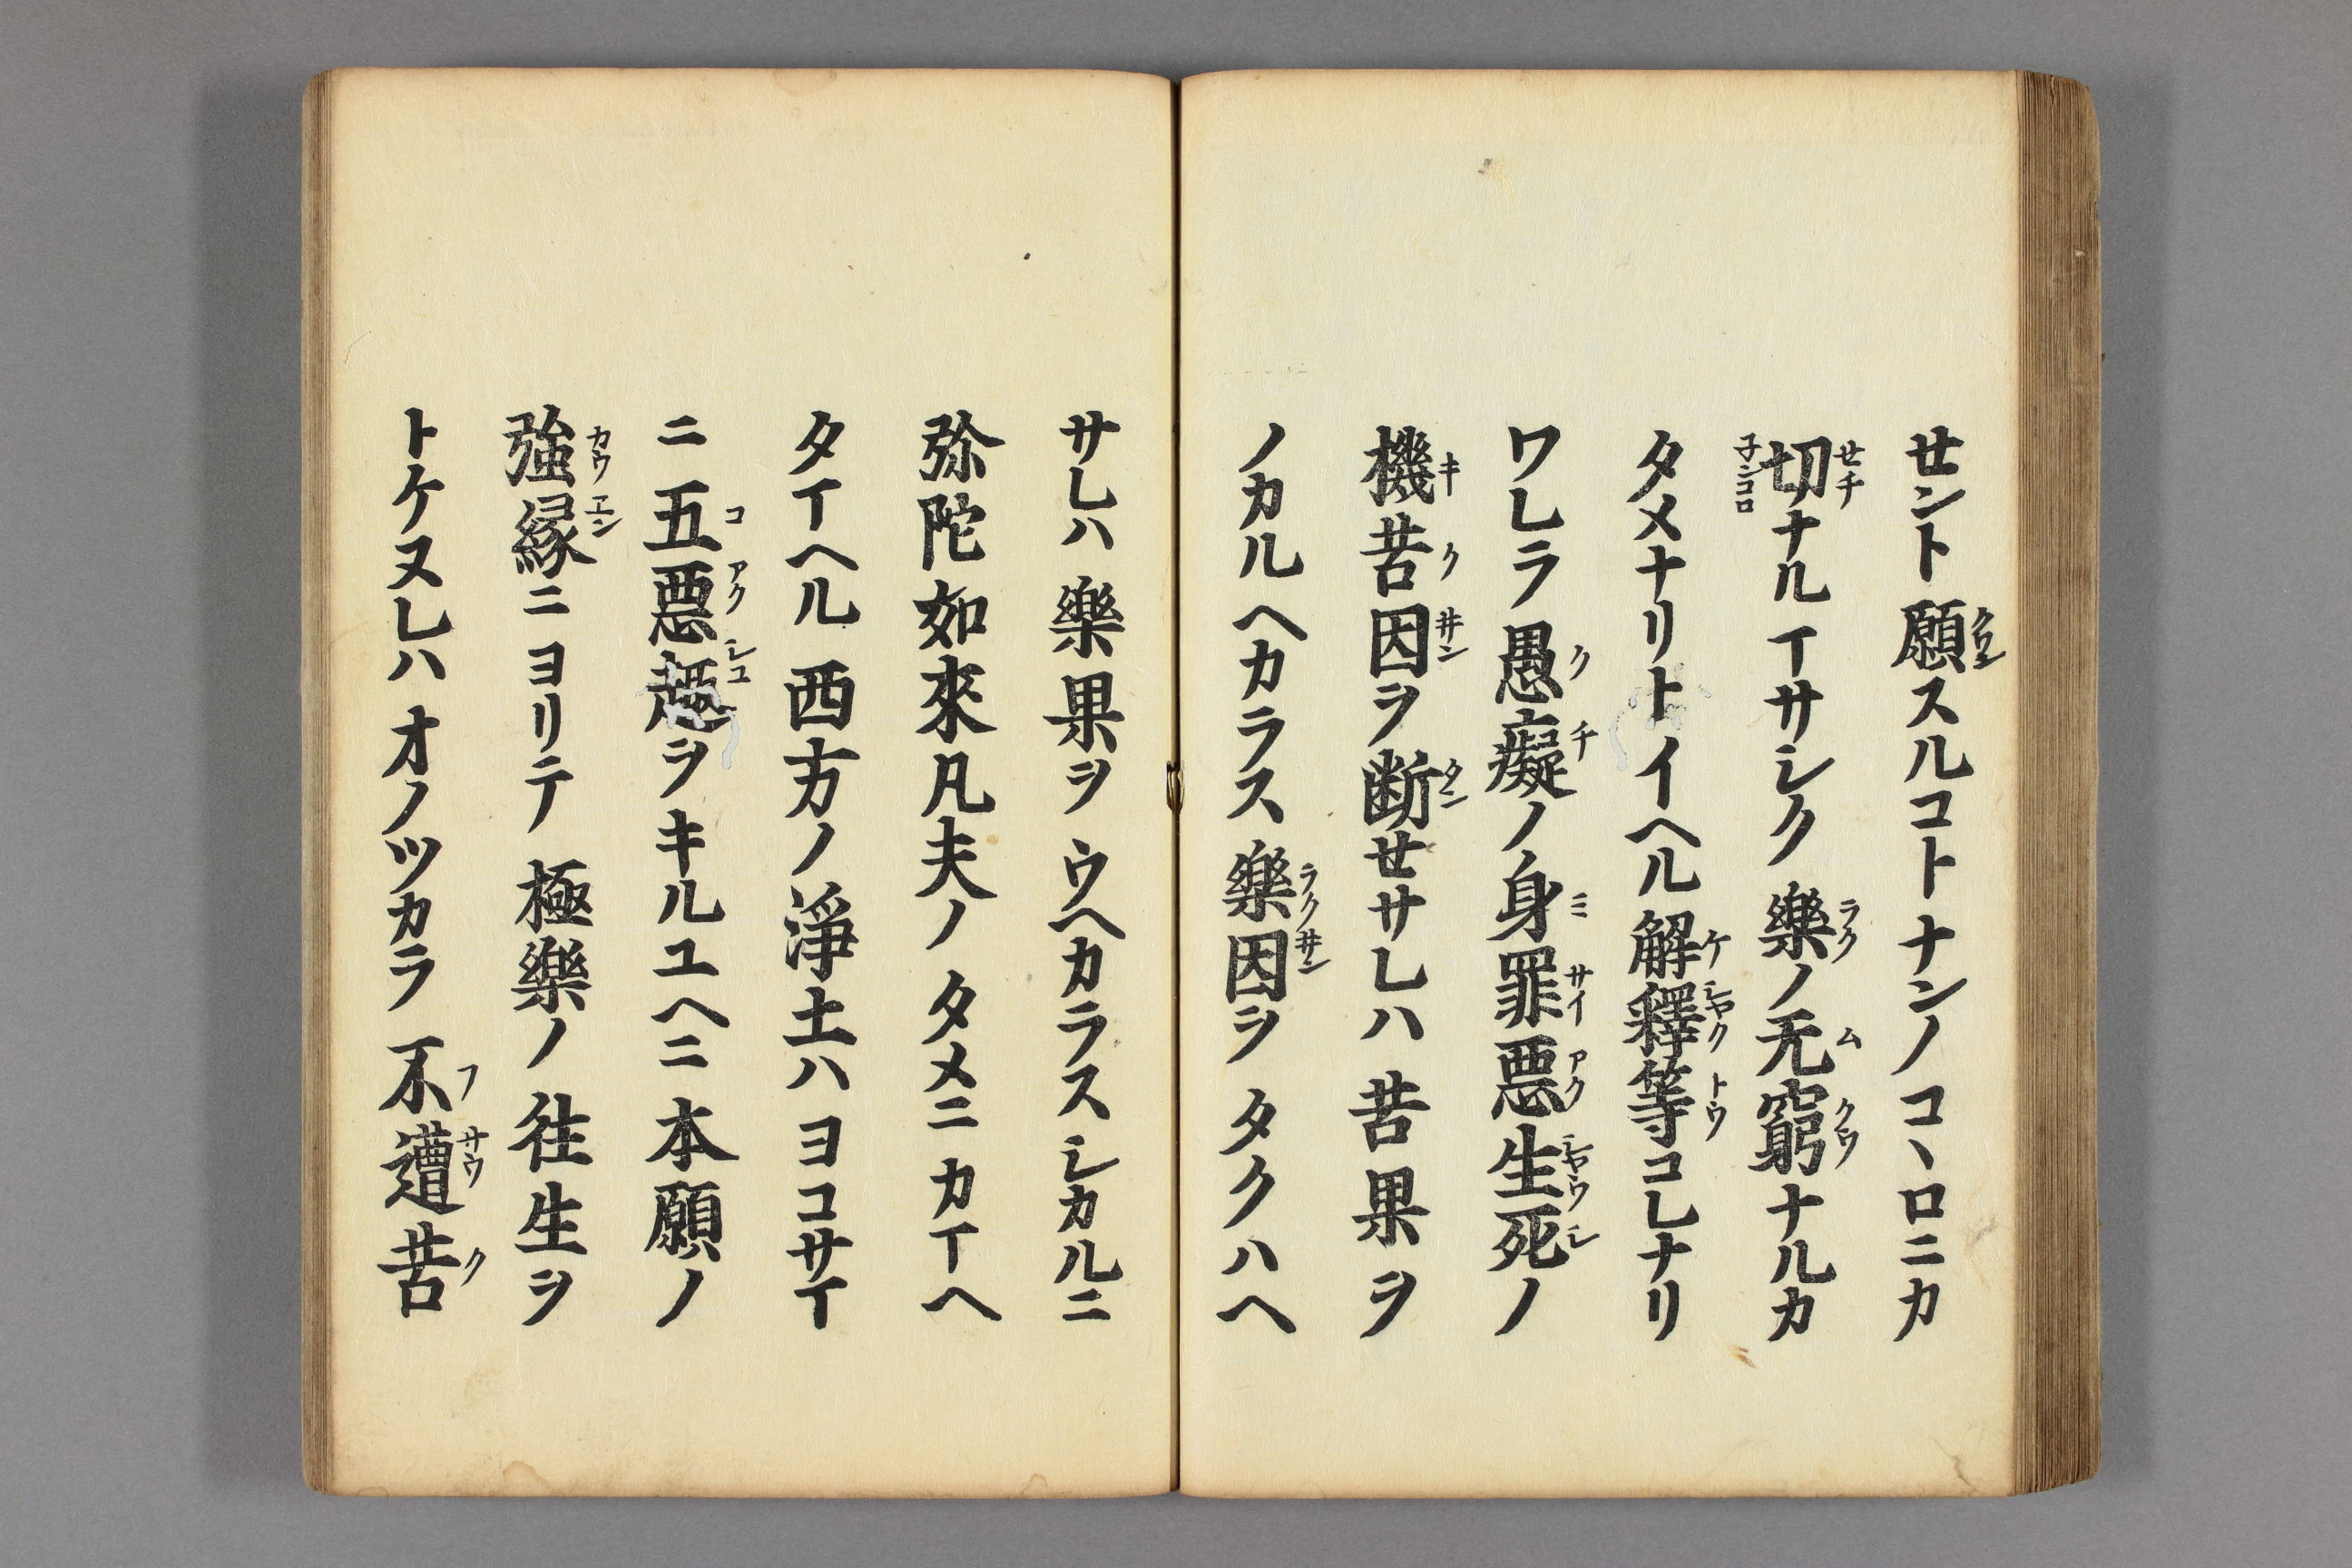 せント願スルコトナンノコヽロニカ
切ナルイサシク樂ノ无窮ナルカ
タメナリトイヘル解釋等コレナリ
ワレラ愚癡ノ身罪惡生死ノ
機苦因ヲ断せサレハ苦果ヲ
ノカルヘカラス樂因ヲタクハヘ
サレハ樂果ヲウヘカラスシカルニ
弥陀如來凡夫ノタメニカイヘ
タイヘル西方ノ淨土ハヨコサイ
ニ五惡趣ヲキルユヘニ本願ノ
強縁ニヨリテ極樂ノ往生ヲ
トケヌレハオノツカラ不遭苦